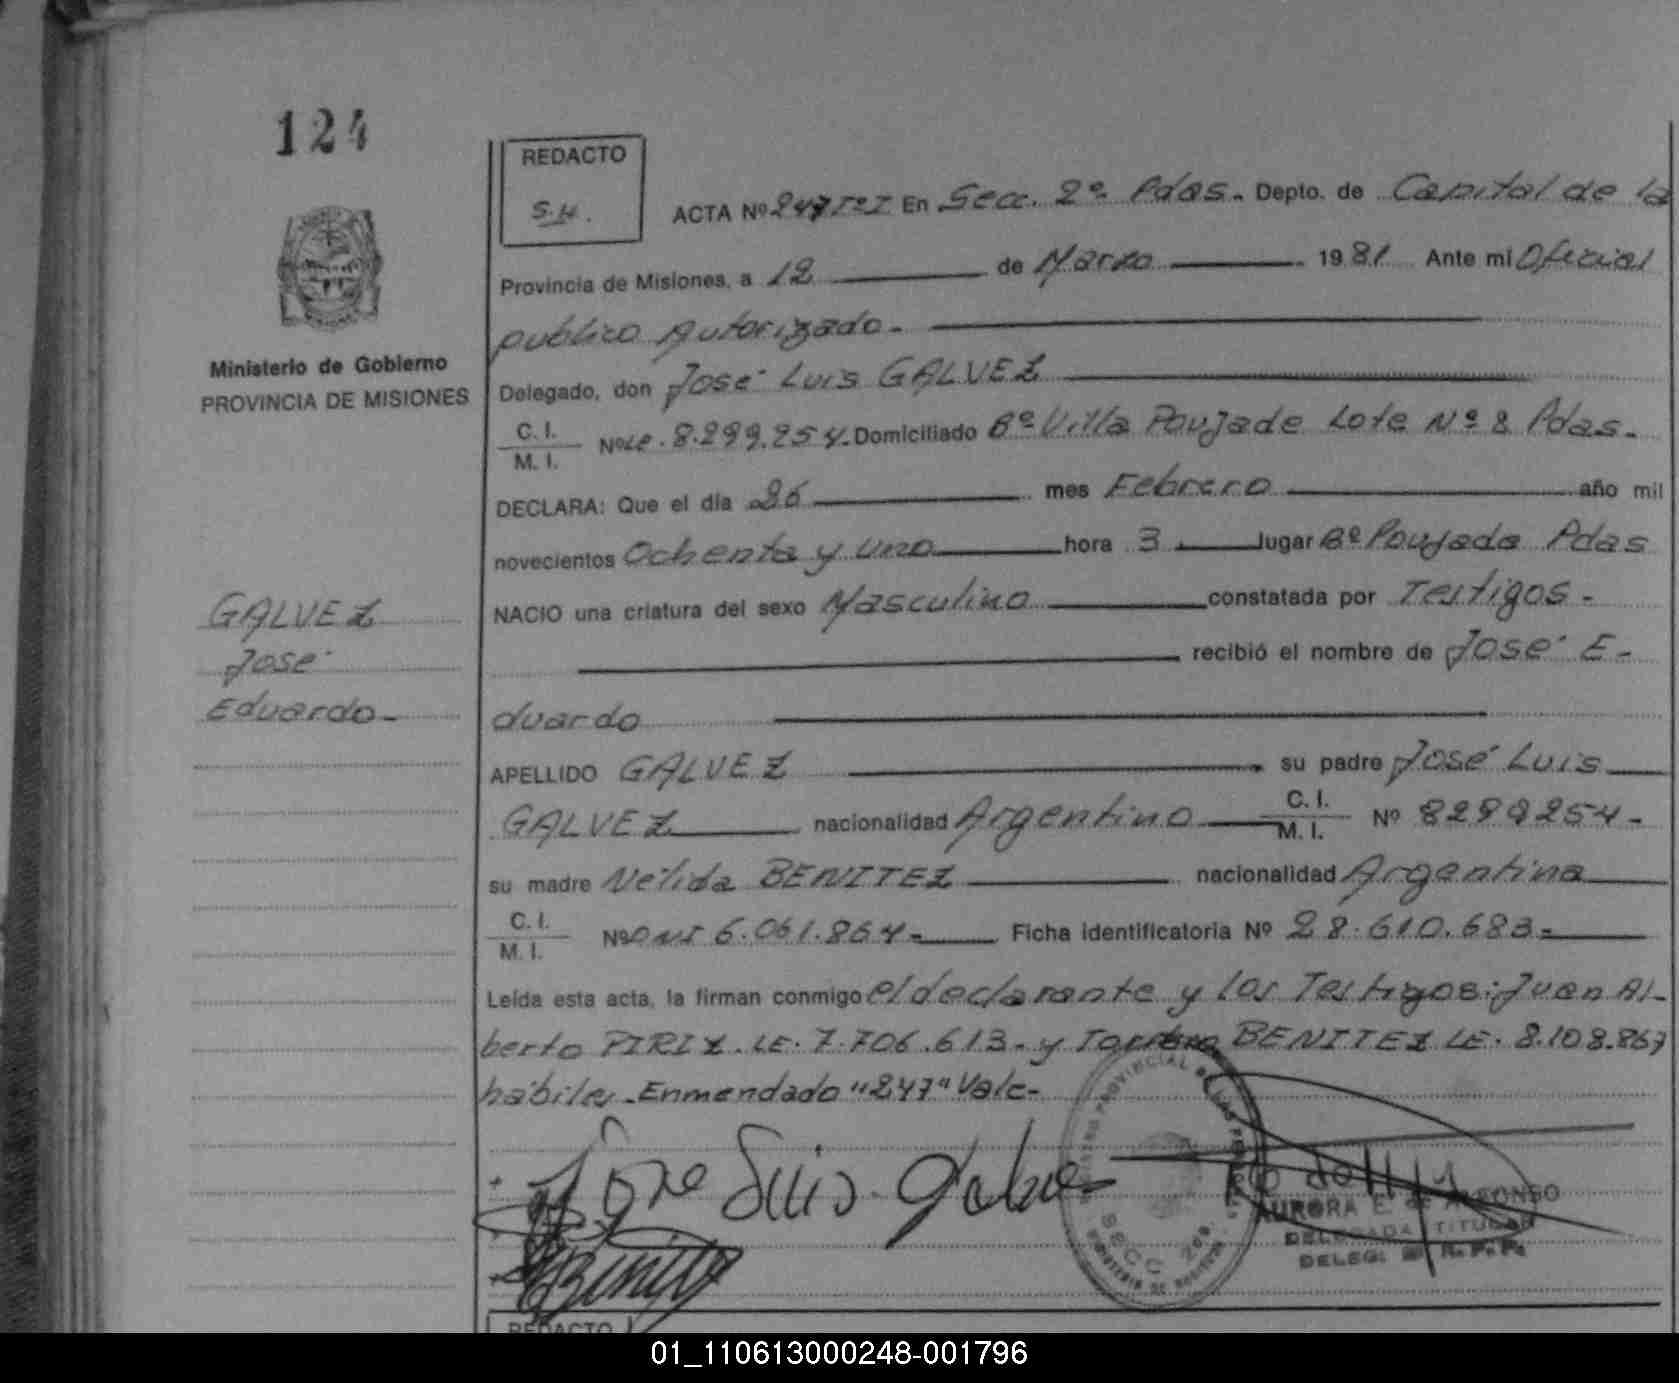 124
REDACTO
S.H.
ACTA Nº 247 Tº I En Secc. 2º Pdas. Depto. de Capital de la
Provincia de Misiones, a 12 de Marzo 1981 Ante mi Oficial
publico Autorizado.
Ministerio de Gobierno
PROVINCIA DE MISIONES
Delegado, don José Luis GALVEZ
C. I.
M. I. Nº LE. 8.299.254. Domiciliado Bº Villa Poujade Lote Nº 8 Pdas.
DECLARA: Que el día 26 mes Febrero año mil
novecientos Ochenta y uno hora 3 lugar Bº Poujade Pdas
NACIO una criatura del sexo Masculino constatada por Testigos.
recibió el nombre de José E-
duardo
GALVEZ
José
Eduardo.
APELLIDO GALVEZ su padre José Luis
GALVEZ nacionalidad Argentino C. I. M. I. Nº 8299254.
su madre Nélida BENITEZ nacionalidad Argentina
C. I.
M. I. Nº DNI 6.061.864. Ficha identificatoria Nº 28.610.683.
Leída esta acta, la firman conmigo el declarante y los Testigos: Juan Al-
berto PIRIZ. LE. 7.706.613. y BENITEZ LE. 8.108.867
hábiles. Enmendado "247" Vale.
Jose Luis Galve
REGISTRO PROVINCIAL DE LAS PERSONAS
SECC 2da.
AURORA E. de ALFONSO
DELEGADA TITULAR
DELEG. R. P. P.
Benitez
REDACTO
01_110613000248-001796